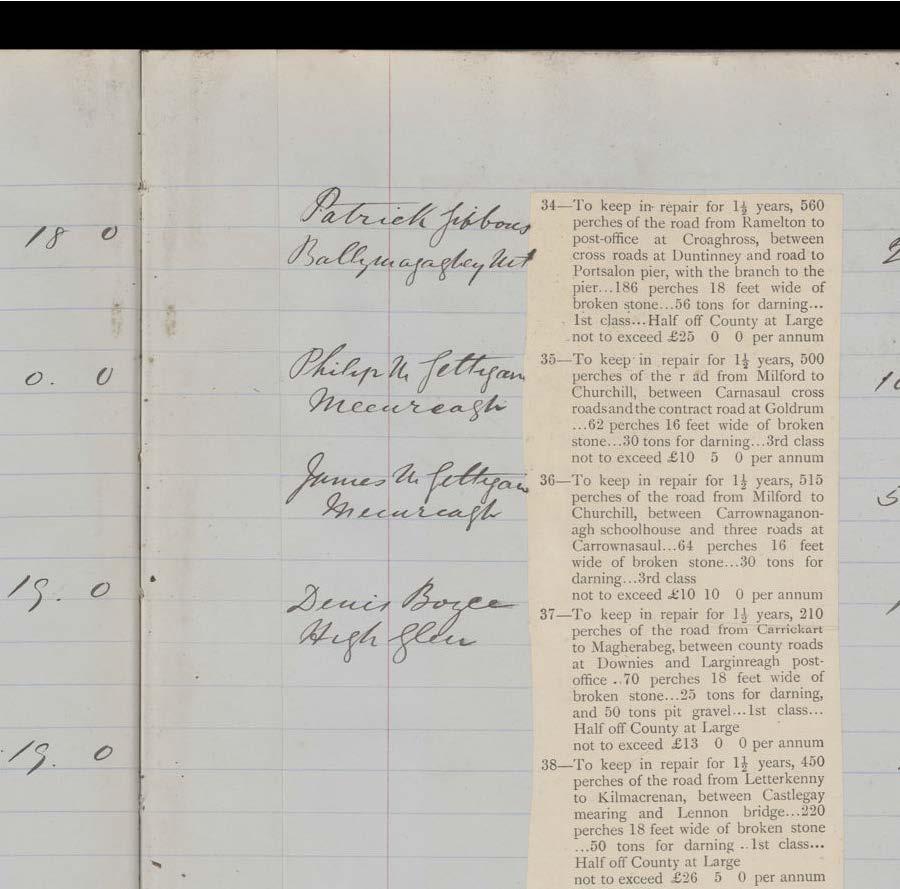 18 0
Patrick Gibbons
Ballymagaghey Mt
34—To keep in repair for 1½ years, 560
perches of the road from Ramelton to
post-office at Croaghross, between
cross roads at Duntinney and road to
Portsalon pier, with the branch to the
pier...186 perches 18 feet wide of
broken stone...56 tons for darning...
1st class...Half off County at Large
not to exceed £25 0 0 per annum
0. 0
Philip Mc Gettigan
Meenreagh
35—To keep in repair for 1½ years, 500
perches of the r ad from Milford to
Churchill, between Carnasaul cross
roads and the contract road at Goldrum
...62 perches 16 feet wide of broken
stone...30 tons for darning...3rd class
not to exceed £10 5 0 per annum
10
James Mc Gettigan
Meenreagh
36—To keep in repair for 1½ years, 515
perches of the road from Milford to
Churchill, between Carrownaganon-
agh schoolhouse and three roads at
Carrownasaul...64 perches 16 feet
wide of broken stone...30 tons for
darning...3rd class
not to exceed £10 10 0 per annum
5
19. 0
Denis Boyce
High Glen
37—To keep in repair for 1½ years, 210
perches of the road from Carrickart
to Magherabeg, between county roads
at Downies and Larginreagh post-
office ..70 perches 18 feet wide of
broken stone...25 tons for darning,
and 50 tons pit gravel...1st class...
Half off County at Large
not to exceed £13 0 0 per annum
19. 0
38—To keep in repair for 1½ years, 450
perches of the road from Letterkenny
to Kilmacrenan, between Castlegay
mearing and Lennon bridge...220
perches 18 feet wide of broken stone
...50 tons for darning ..1st class...
Half off County at Large
not to exceed £26 5 0 per annum